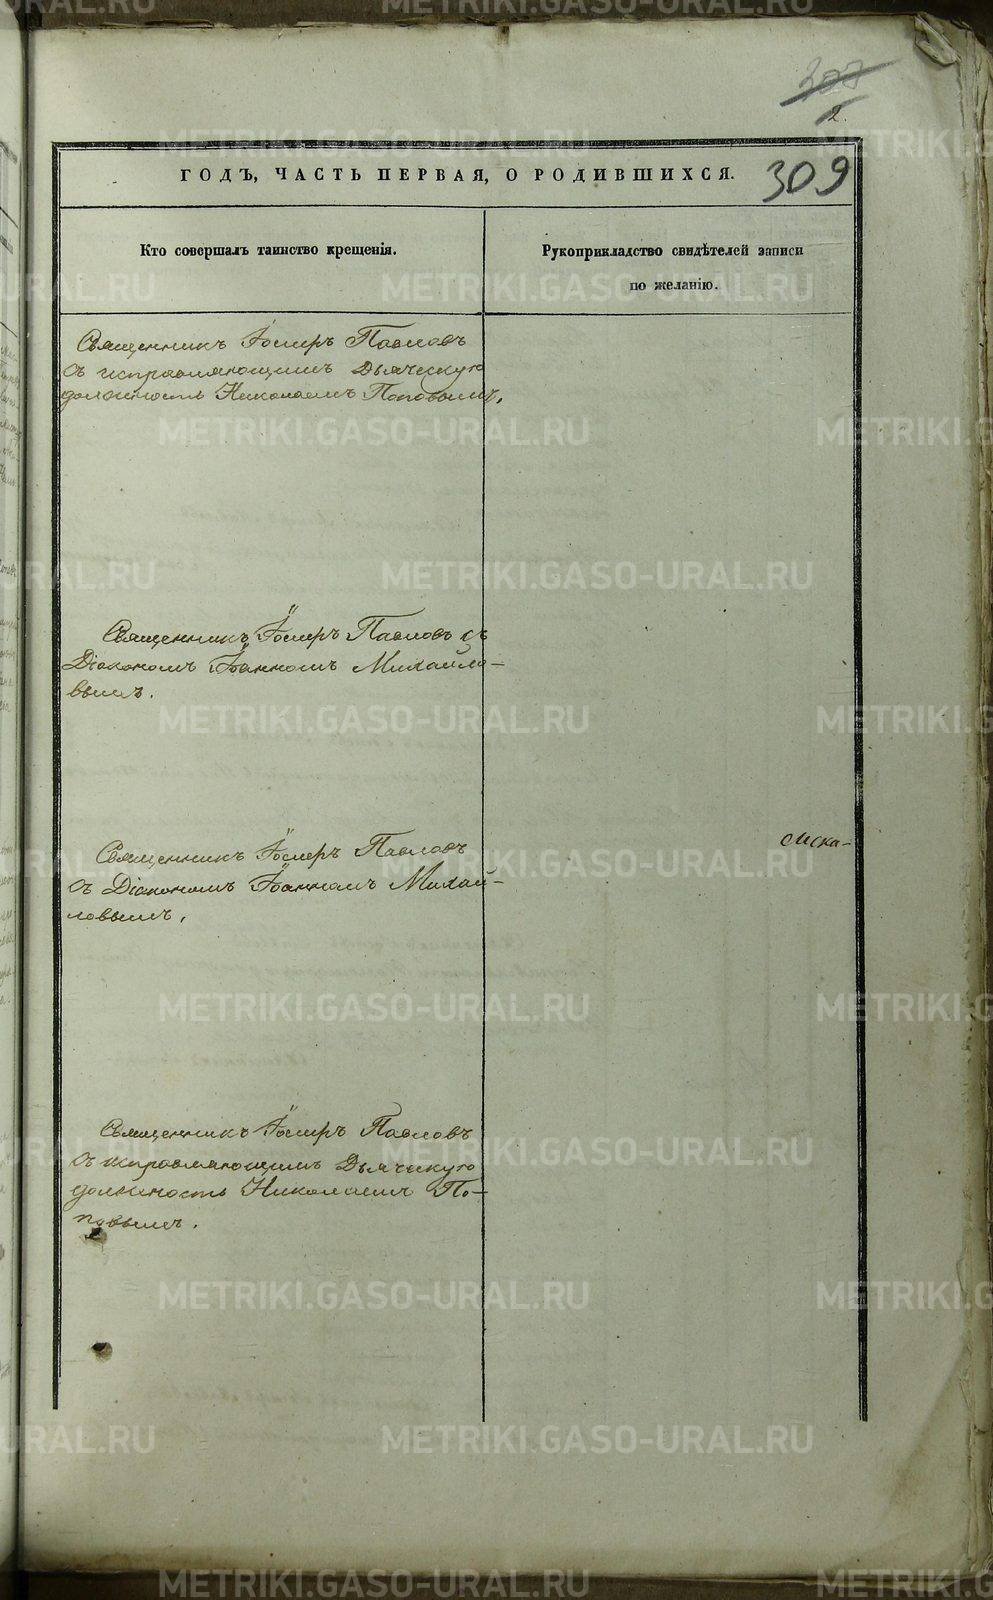 307
2.
ГОДЪ, ЧАСТЬ ПЕРВАЯ, О РОДИВШИХСЯ.
309
Кто совершалъ таинство крещенія.
Рукоприкладство свидѣтелей записи
по желанію.
Священникъ Іосифъ Павловъ
съ исправляющимъ Дьяческую
должность Николаемъ Поповымъ.
Священникъ Іосифъ Павловъ съ
Діакономъ Іоанномъ Михайло-
вымъ.
Священникъ Іосифъ Павловъ
съ Діакономъ Іоанномъ Михай-
ловымъ.
Священникъ Іосифъ Павловъ
съ исправляющимъ Дьяческую
должность Николаемъ По-
повымъ.
METRIKI.GASO-URAL.RU